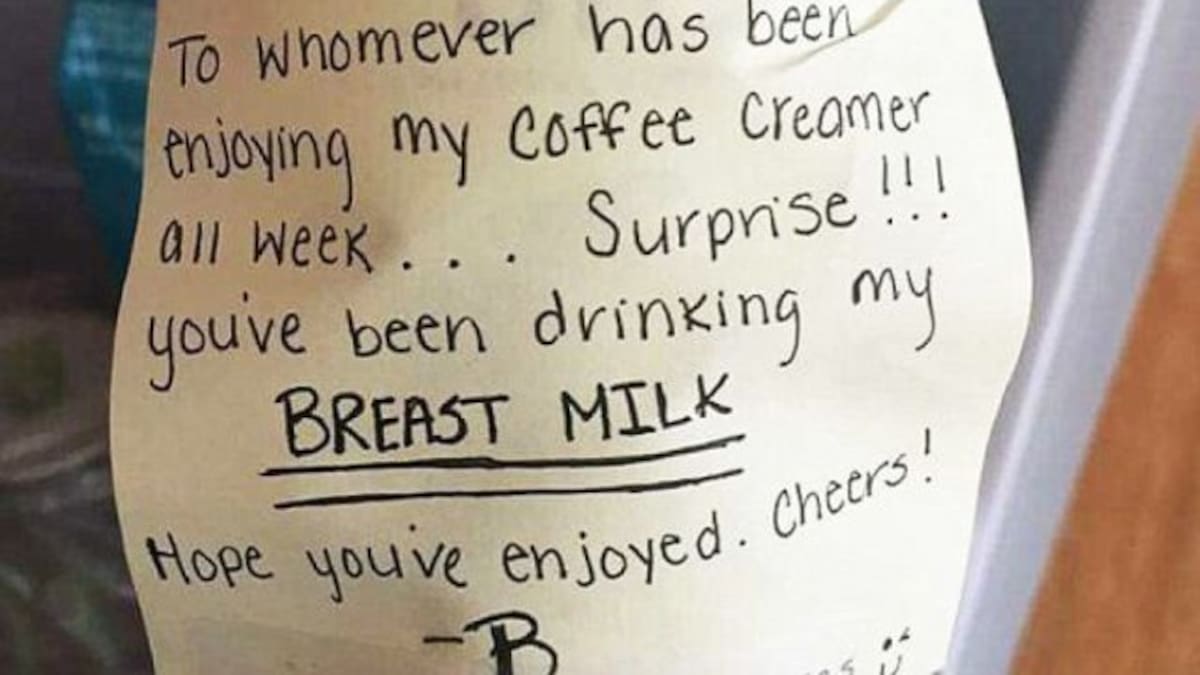 To whomever has been
enjoying my coffee creamer
all week... Surprise!!!
you've been drinking my
BREAST MILK
Hope you've enjoyed. Cheers!
-B